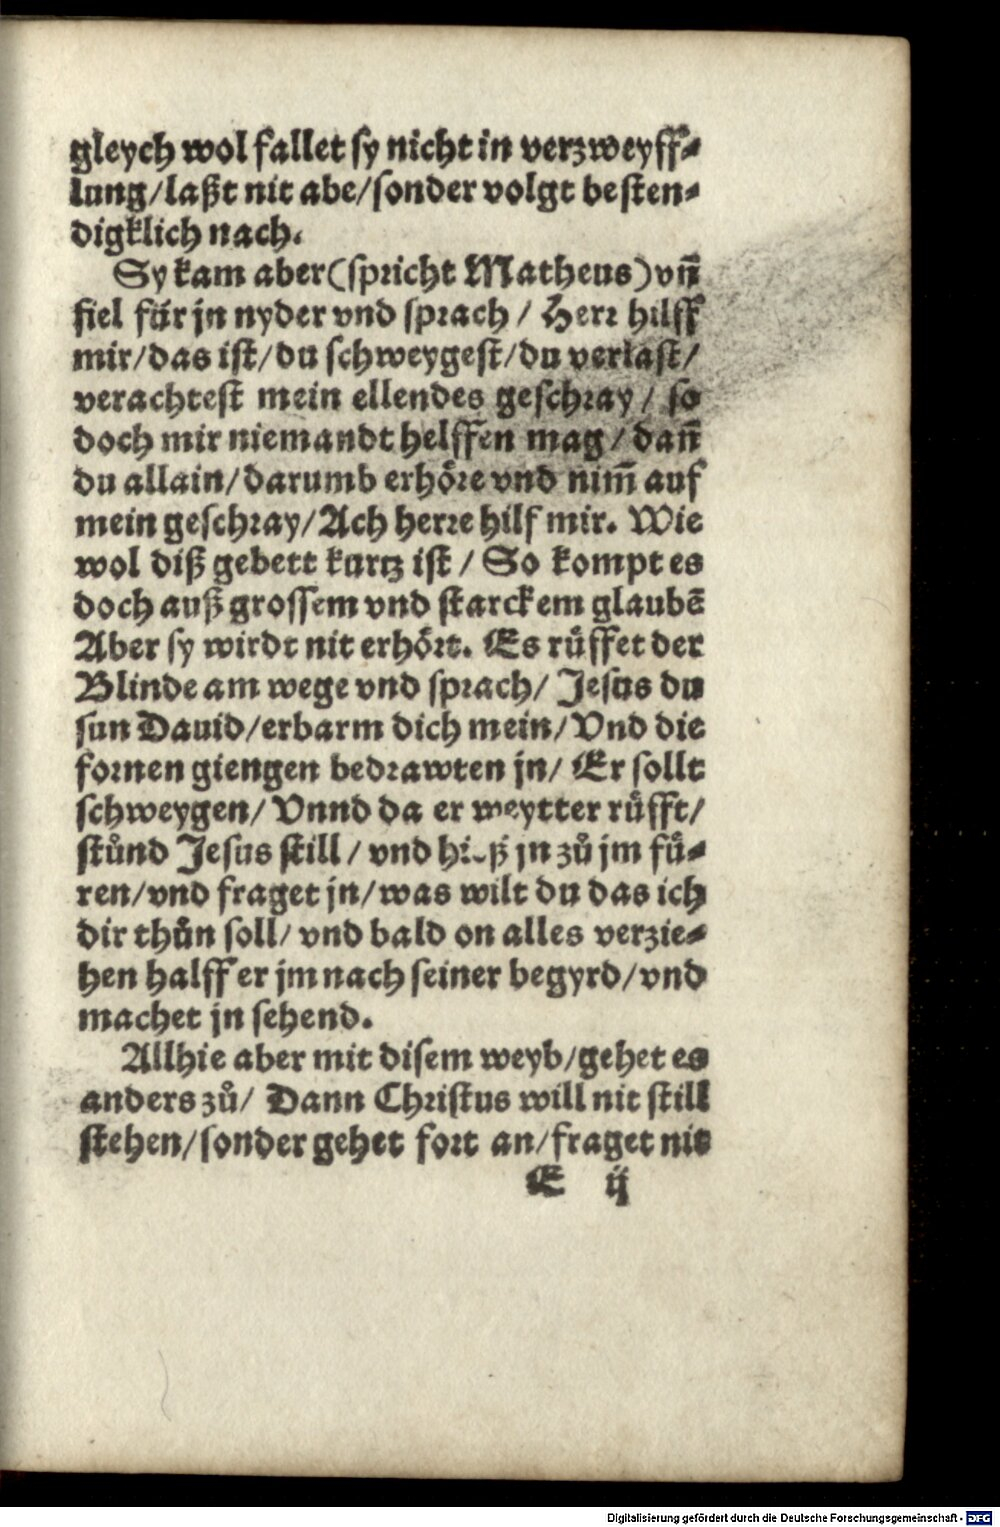 gleych wol fallet sy nicht in verzweyff⸗
lung/laßt nit abe/sonder volgt besten⸗
digklich nach.
Sy kam aber(spricht Matheus)vn̄
fiel für jn nyder vnd sprach / Herr hilff
mir/das ist/du schweygest/du verlast/
verachtest mein ellendes geschray / so
doch mir niemandt helffen mag / dan̄
du allain/darumb erhöre vnd nim̄ auf
mein geschray/Ach herre hilf mir. Wie
wol diß gebett kurtz ist / So kompt es
doch auß grossem vnd starckem glaubē
Aber sy wirdt nit erhört. Es rüffet der
Blinde am wege vnd sprach/ Jesus du
sun Dauid/erbarm dich mein/Vnd die
fornen giengen bedrawten jn/ Er sollt
schweygen/ Vnnd da er weytter rüfft/
stůnd Jesus still / vnd hieß jn zů jm fü⸗
ren/vnd fraget jn/was wilt du das ich
dir thůn soll/ vnd bald on alles verzie⸗
hen halff er jm nach seiner begyrd/vnd
machet jn sehend.
Allhie aber mit disem weyb/gehet es
anders zů/ Dann Christus will nit still
stehen/sonder gehet fort an/fraget nit
E ij
Digitalisierung gefördert durch die Deutsche Forschungsgemeinschaft - DFG